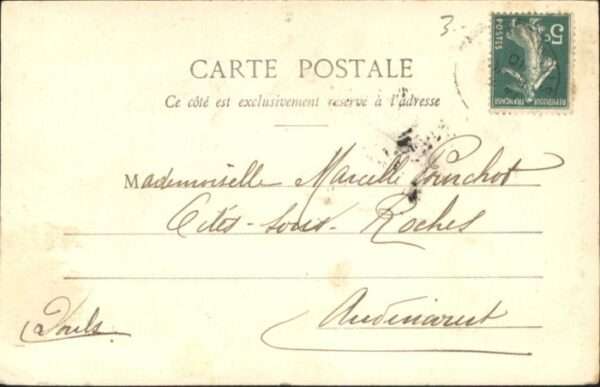 3
5c
POSTES
REPUBLIQUE FRANÇAISE
CARTE POSTALE
Ce côté est exclusivement reservé à l'adresse
Mademoiselle Marcelle
Cités-sous-Roches
Audincourt
Doubs